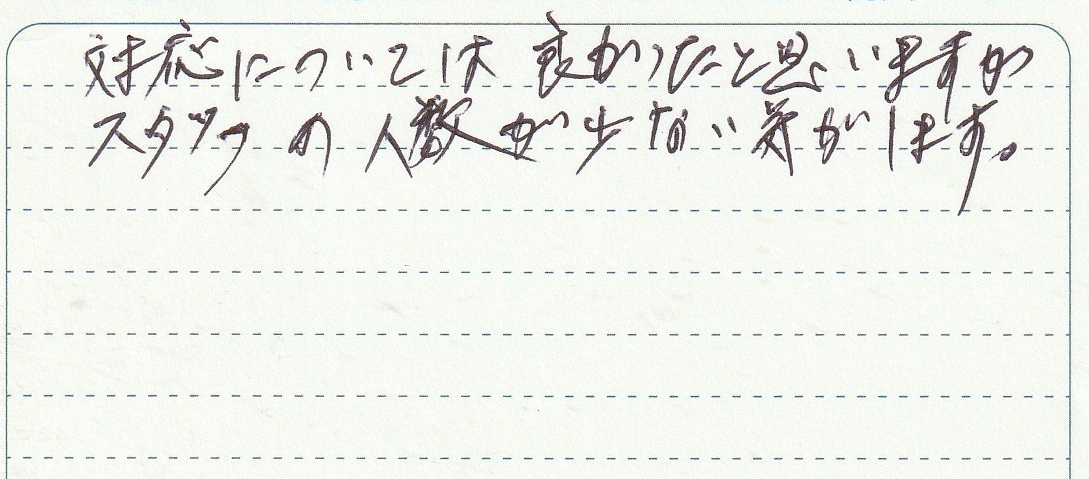 対応については良かったと思いますが
スタッフの人数が少ない気がします。